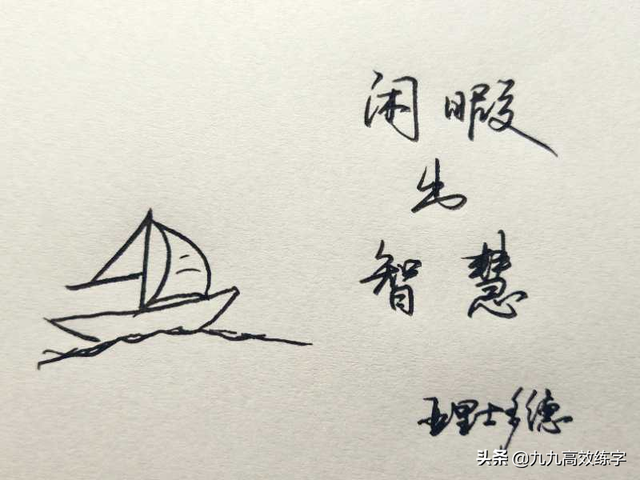 闲暇
出
智慧
亚里士多德
头条 @九九高效练字